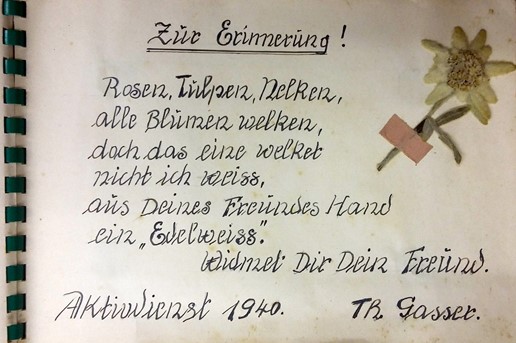 Zur Erinnerung!
Rosen, Tulpen, Nelken,
alle Blumen welken,
doch das eine welket
nicht ich weiss,
aus Deines Freundes Hand
ein „Edelweiss".
Widmet Dir Dein Freund.
Aktivdienst 1940. Th. Gasser.